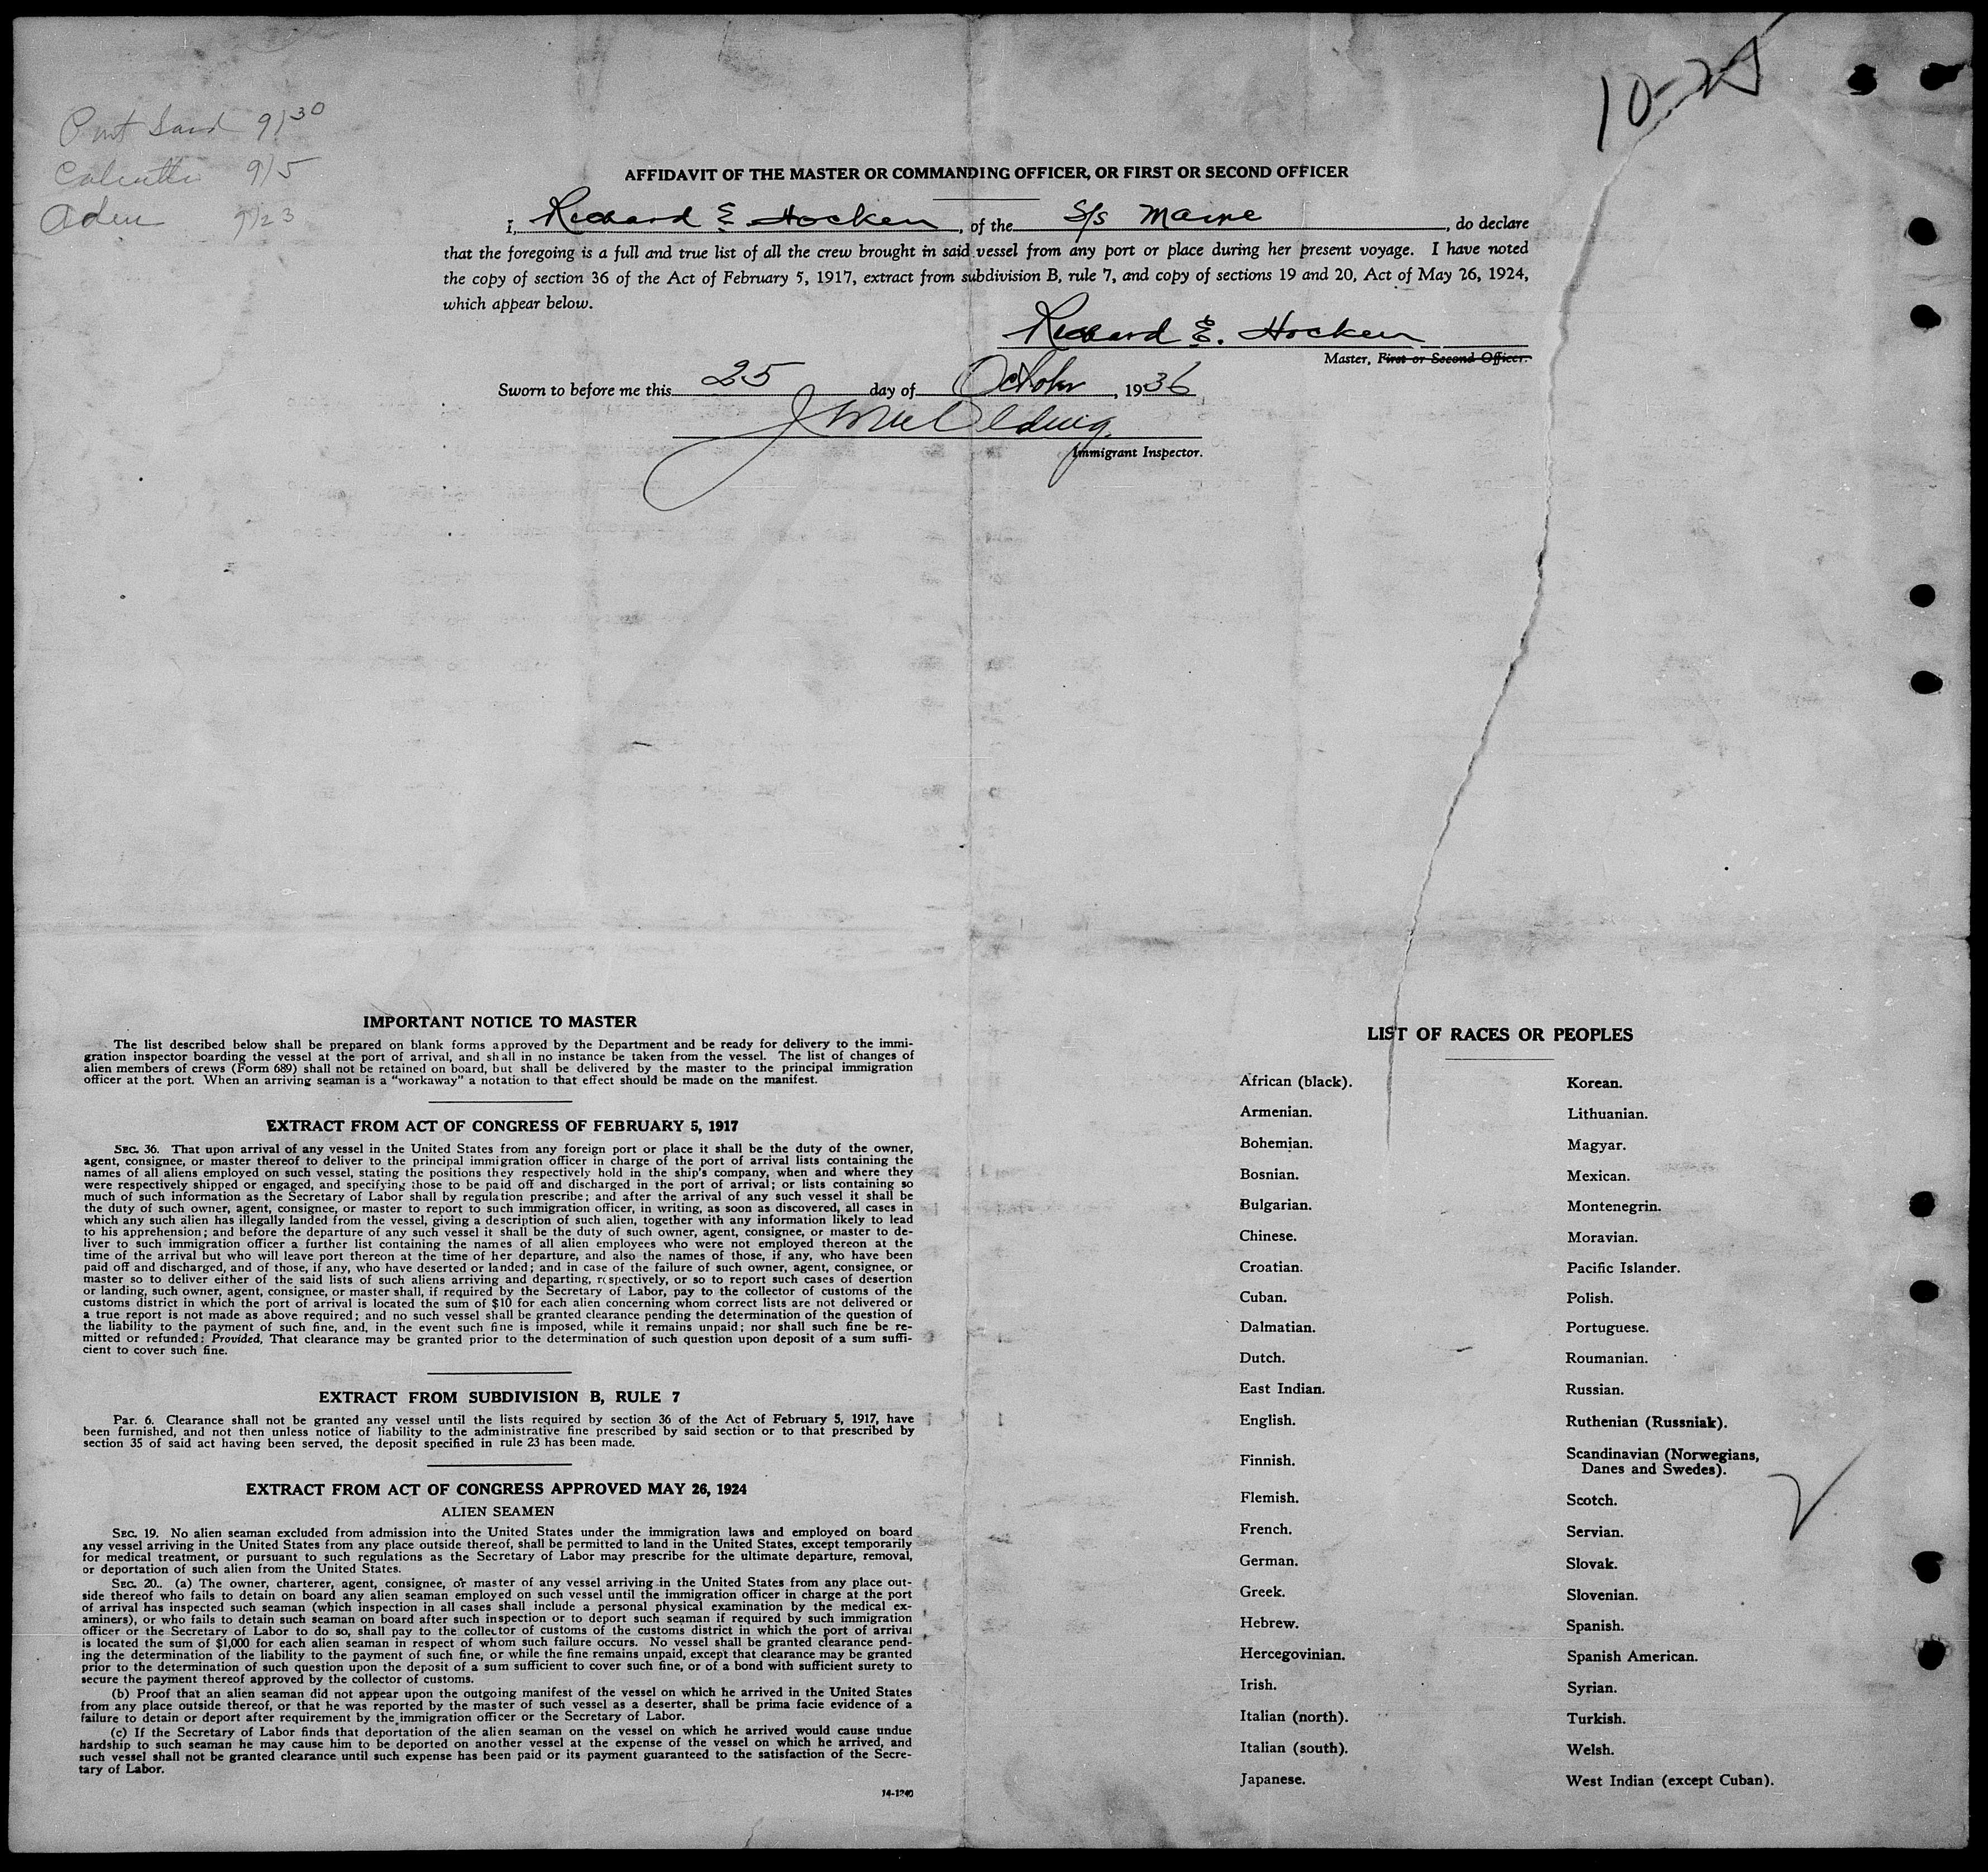 10-25
Port Said 9/30
Calcutta 9/5
Aden 9/23
AFFIDAVIT OF THE MASTER OR COMMANDING OFFICER, OR FIRST OR SECOND OFFICER
I, Richard E Hocken, of the S/s, do declare
that the foregoing is a full and true list of all the crew brought in said vessel from any port or place during her present voyage. I have noted
the copy of section 36 of the Act of February 5, 1917, extract from subdivision B, rule 7, and copy of sections 19 and 20, Act of May 26, 1924,
which appear below.
Richard E. Hocken
Master, First or Second Officer.
Sworn to before me this 25 day of October, 1936
Immigrant Inspector.
IMPORTANT NOTICE TO MASTER
The list described below shall be prepared on blank forms approved by the Department and be ready for delivery to the immi-
gration inspector boarding the vessel at the port of arrival, and shall in no instance be taken from the vessel. The list of changes of
alien members of crews (Form 689) shall not be retained on board, but shall be delivered by the master to the principal immigration
officer at the port. When an arriving seaman is a "workaway" a notation to that effect should be made on the manifest.
EXTRACT FROM ACT OF CONGRESS OF FEBRUARY 5, 1917
SEC. 36. That upon arrival of any vessel in the United States from any foreign port or place it shall be the duty of the owner,
agent, consignee, or master thereof to deliver to the principal immigration officer in charge of the port of arrival lists containing the
names of all aliens employed on such vessel, stating the positions they respectively hold in the ship's company, when and where they
were respectively shipped or engaged, and specifying those to be paid off and discharged in the port of arrival; or lists containing so
much of such information as the Secretary of Labor shall by regulation prescribe; and after the arrival of any such vessel it shall be
the duty of such owner, agent, consignee, or master to report to such immigration officer, in writing, as soon as discovered, all cases in
which any such alien has illegally landed from the vessel, giving a description of such alien, together with any information likely to lead
to his apprehension; and before the departure of any such vessel it shall be the duty of such owner, agent, consignee, or master to de-
liver to such immigration officer a further list containing the names of all alien employees who were not employed thereon at the
time of the arrival but who will leave port thereon at the time of her departure, and also the names of those, if any, who have been
paid off and discharged, and of those, if any, who have deserted or landed; and in case of the failure of such owner, agent, consignee, or
master so to deliver either of the said lists of such aliens arriving and departing, respectively, or so to report such cases of desertion
or landing, such owner, agent, consignee, or master shall, if required by the Secretary of Labor, pay to the collector of customs of the
customs district in which the port of arrival is located the sum of $10 for each alien concerning whom correct lists are not delivered or
a true report is not made as above required; and no such vessel shall be granted clearance pending the determination of the question of
the liability to the payment of such fine, and, in the event such fine is imposed, while it remains unpaid; nor shall such fine be re-
mitted or refunded: Provided, That clearance may be granted prior to the determination of such question upon deposit of a sum suffi-
cient to cover such fine.
EXTRACT FROM SUBDIVISION B, RULE 7
Par. 6. Clearance shall not be granted any vessel until the lists required by section 36 of the Act of February 5, 1917, have
been furnished, and not then unless notice of liability to the administrative fine prescribed by said section or to that prescribed by
section 35 of said act having been served, the deposit specified in rule 23 has been made.
EXTRACT FROM ACT OF CONGRESS APPROVED MAY 26, 1924
ALIEN SEAMEN
SEC. 19. No alien seaman excluded from admission into the United States under the immigration laws and employed on board
any vessel arriving in the United States from any place outside thereof, shall be permitted to land in the United States, except temporarily
for medical treatment, or pursuant to such regulations as the Secretary of Labor may prescribe for the ultimate departure, removal,
or deportation of such alien from the United States.
SEC. 20.. (a) The owner, charterer, agent, consignee, or master of any vessel arriving in the United States from any place out-
side thereof who fails to detain on board any alien seaman employed on such vessel until the immigration officer in charge at the port
of arrival has inspected such seaman (which inspection in all cases shall include a personal physical examination by the medical ex-
aminers), or who fails to detain such seaman on board after such inspection or to deport such seaman if required by such immigration
officer or the Secretary of Labor to do so, shall pay to the collector of customs of the customs district in which the port of arrival
is located the sum of $1,000 for each alien seaman in respect of whom such failure occurs. No vessel shall be granted clearance pend-
ing the determination of the liability to the payment of such fine, or while the fine remains unpaid, except that clearance may be granted
prior to the determination of such question upon the deposit of a sum sufficient to cover such fine, or of a bond with sufficient surety to
secure the payment thereof approved by the collector of customs.
(b) Proof that an alien seaman did not appear upon the outgoing manifest of the vessel on which he arrived in the United States
from any place outside thereof, or that he was reported by the master of such vessel as a deserter, shall be prima facie evidence of a
failure to detain or deport after requirement by the immigration officer or the Secretary of Labor.
(c) If the Secretary of Labor finds that deportation of the alien seaman on the vessel on which he arrived would cause undue
hardship to such seaman he may cause him to be deported on another vessel at the expense of the vessel on which he arrived, and
such vessel shall not be granted clearance until such expense has been paid or its payment guaranteed to the satisfaction of the Secre-
tary of Labor.
14-1240
LIST OF RACES OR PEOPLES
African (black).
Armenian.
Bohemian.
Bosnian.
Bulgarian.
Chinese.
Croatian.
Cuban.
Dalmatian.
Dutch.
East Indian.
English.
Finnish.
Flemish.
French.
German.
Greek.
Hebrew.
Hercegovinian.
Irish.
Italian (north).
Italian (south).
Japanese.
Korean.
Lithuanian.
Magyar.
Mexican.
Montenegrin.
Moravian.
Pacific Islander.
Polish.
Portuguese.
Roumanian.
Russian.
Ruthenian (Russniak).
Scandinavian (Norwegians,
Danes and Swedes).
Scotch.
Servian.
Slovak.
Slovenian.
Spanish.
Spanish American.
Syrian.
Turkish.
Welsh.
West Indian (except Cuban).